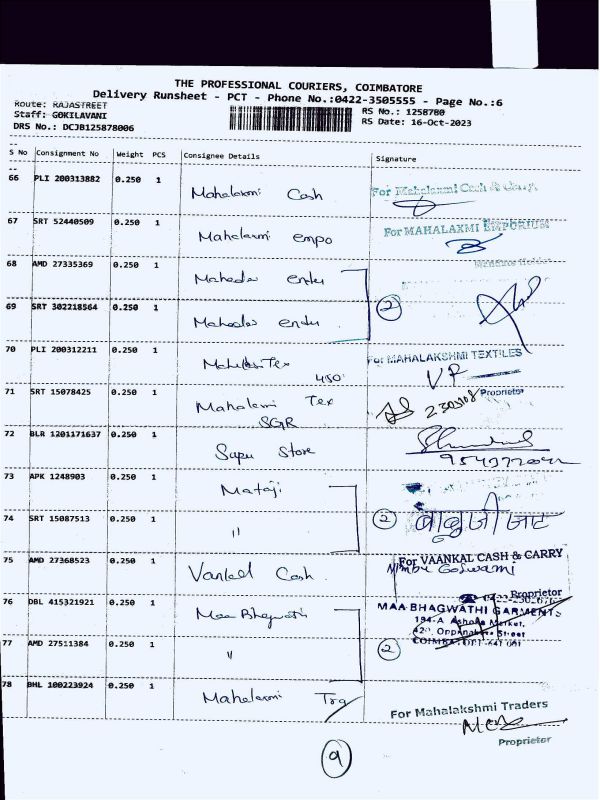 THE PROFESSIONAL COURIERS, COIMBATORE
Delivery Runsheet - PCT - Phone No.:0422-3505555 - Page No.:6
Route: RAJASTREET
RS No.: 1258780
Staff: GOKILAVANI
RS Date: 16-Oct-2023
DRS No.: DCJB125878006
S No Consignment No Weight PCS Consignee Details Signature
66 PLI 200313882 0.250 1 Mahalaxmi Cash For Mahalaxmi Cash & Carry
67 SRT 52440509 0.250 1 Mahalaxmi empo For MAHALAXMI EMPORIUM
68 AMD 27335369 0.250 1 Mahadev enter
69 SRT 302218564 0.250 1 Mahadev enter 2
70 PLI 200312211 0.250 1 Tex For MAHALAKSHMI TEXTILES
450
Proprietor
71 SRT 15078425 0.250 1 Mahalaxmi Tex
SGR
72 BLR 1201171637 0.250 1 Sapu Store
73 APK 1248903 0.250 1 Mataji
74 SRT 15087513 0.250 1 " 2 बाबुजी जाट
75 AMD 27368523 0.250 1 Vankal Cash. For VAANKAL CASH & CARRY
Goswami
Proprietor
76 DBL 415321921 0.250 1 Maa Bhagwathi MAA BHAGWATHI GARMENTS
194-A Ashoka Market,
Street
77 AMD 27511384 0.250 1 " 2
78 BHL 100223924 0.250 1 Mahalaxmi Trg For Mahalakshmi Traders
Proprietor
9